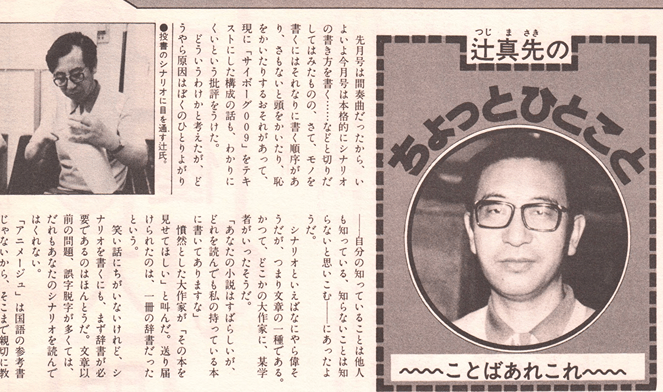 つじ まさき
辻真先の
ちょっとひとこと
〜〜〜ことばあれこれ〜〜〜
先月号は間奏曲だったから、い
よいよ今月号は本格的にシナリオ
の書き方を書く……などと切りだ
してはみたものの、さて、モノを
書くにはそれなりに書く順序があ
り、さもないと頭をかいたり、恥
をかいたりするおそれがあって、
現に「サイボーグ009」をテキ
ストにした構成の話も、わかりに
くいという批評をうけた。
どういうわけかと考えたが、ど
うやら原因はぼくのひとりよがり
●投書のシナリオに目を通す辻氏。
――自分の知っていることは他人
も知っている、知らないことは知
らないと思いこむ――にあったよ
うだ。
シナリオといえばなにやら偉そ
うだが、つまり文章の一種である。
かつて、どこかの大作家に、某学
者がいったそうだ。
「あなたの小説はすばらしいが、
どれを読んでも私の持っている本
に書いてありますな」
憤然とした大作家が「その本を
見せてほしい」と叫んだ。送り届
けられたのは、一冊の辞書だった
という。
笑い話にちがいないけれど、シ
ナリオを書くにも、まず辞書が必
要であるのはほんとうだ。文章以
前の問題、誤字脱字が多くては、
だれもあなたのシナリオを読んで
はくれない。
「アニメージュ」は国語の参考書
じゃないから、そこまで親切に教